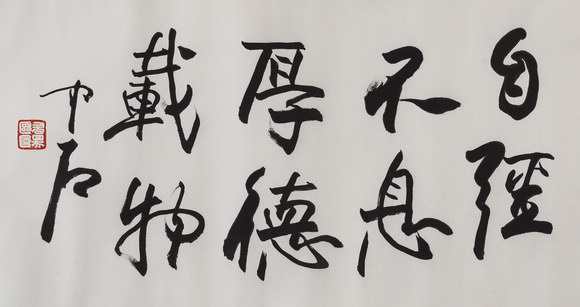 自彊
不息
厚德
載物
中石